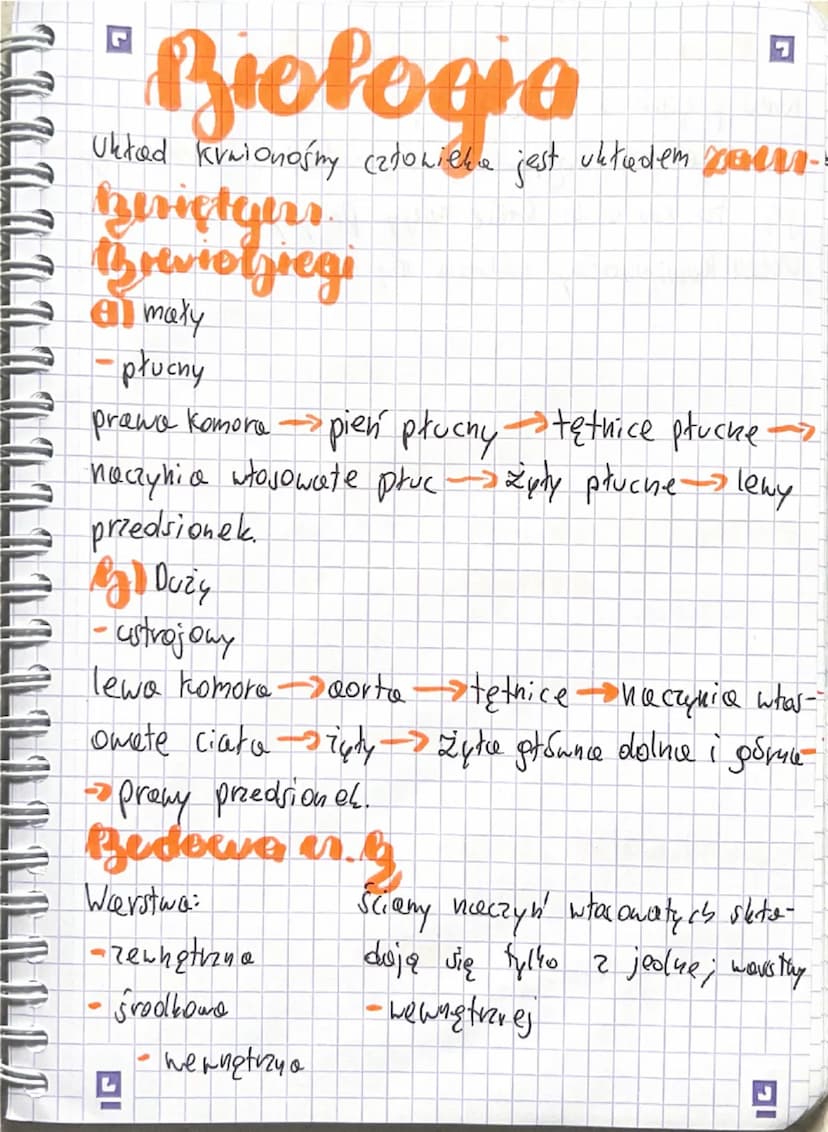 Biologia
układ krwionośny człowieka jest układem zam-
kniętym.
Krwiobiegi
a) mały
- płucny
prawa komora → pień płucny → tętnice płucne →
naczynia włosowate płuc → żyły płucne → lewy
przedsionek.
b) Duży
- ustrojowy
lewa komora → aorta → tętnice → naczynia włos-
owate ciała → żyły → żyła główna dolna i górna
→ prawy przedsionek.
Budowa n.
Warstwa:
- zewnętrzna
- środkowa
- wewnętrzna
Ściany naczyń włosowatych skła-
dają się tylko z jednej warstwy
- wewnętrznej